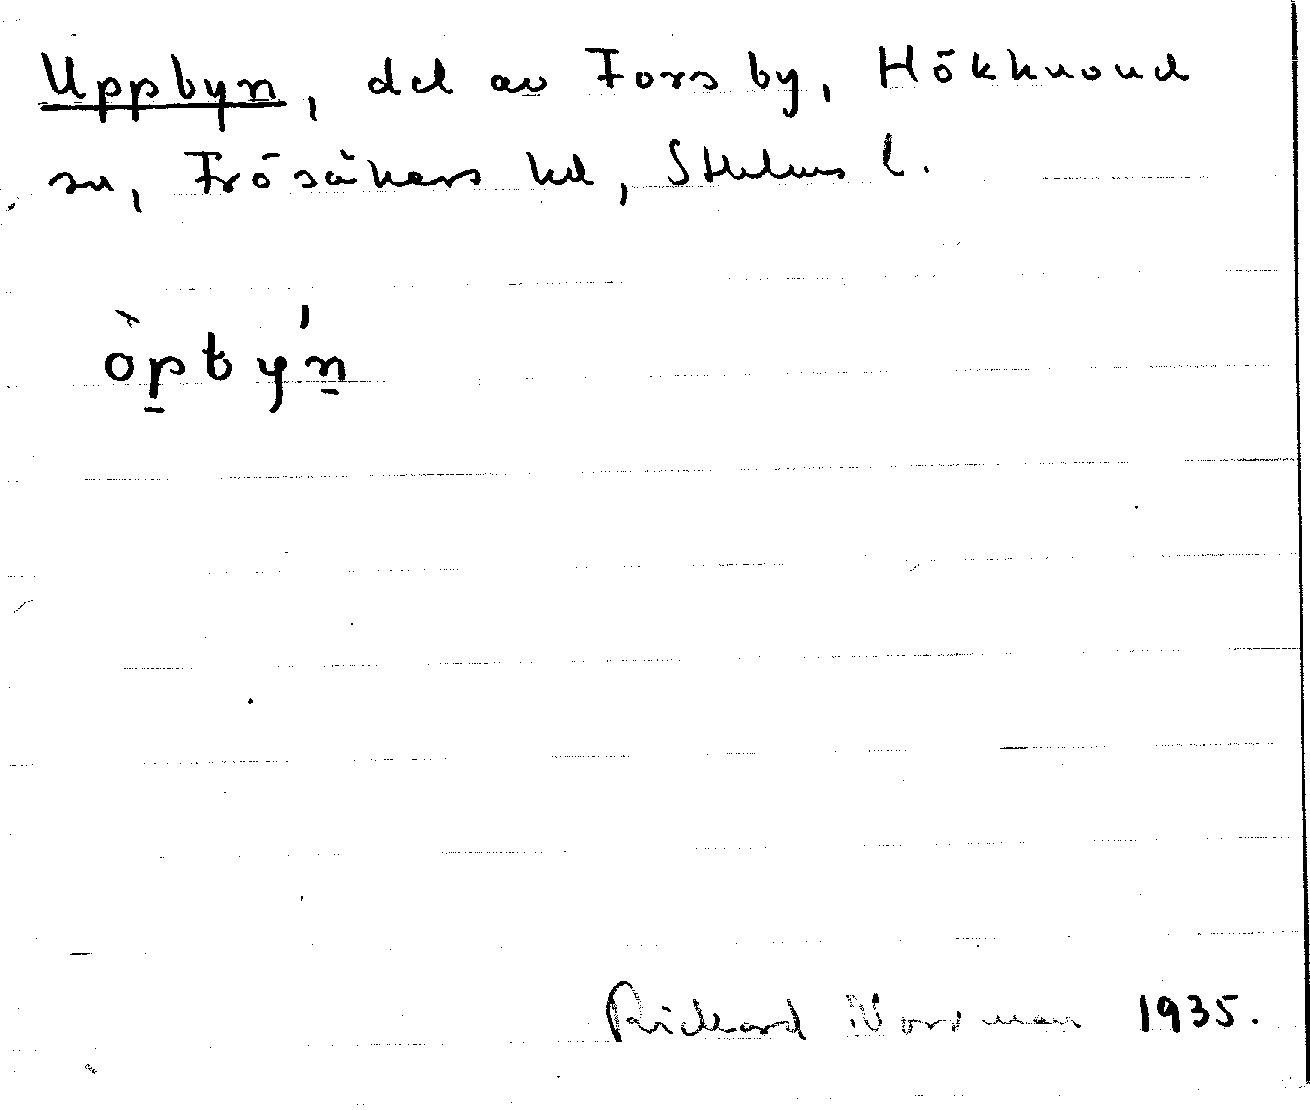 Uppbyn, del av Forsby, Hökhuvud
sn, Frösåkers hd, Sthlms l.
òp̠by´n̠
Richard Norrman 1935.